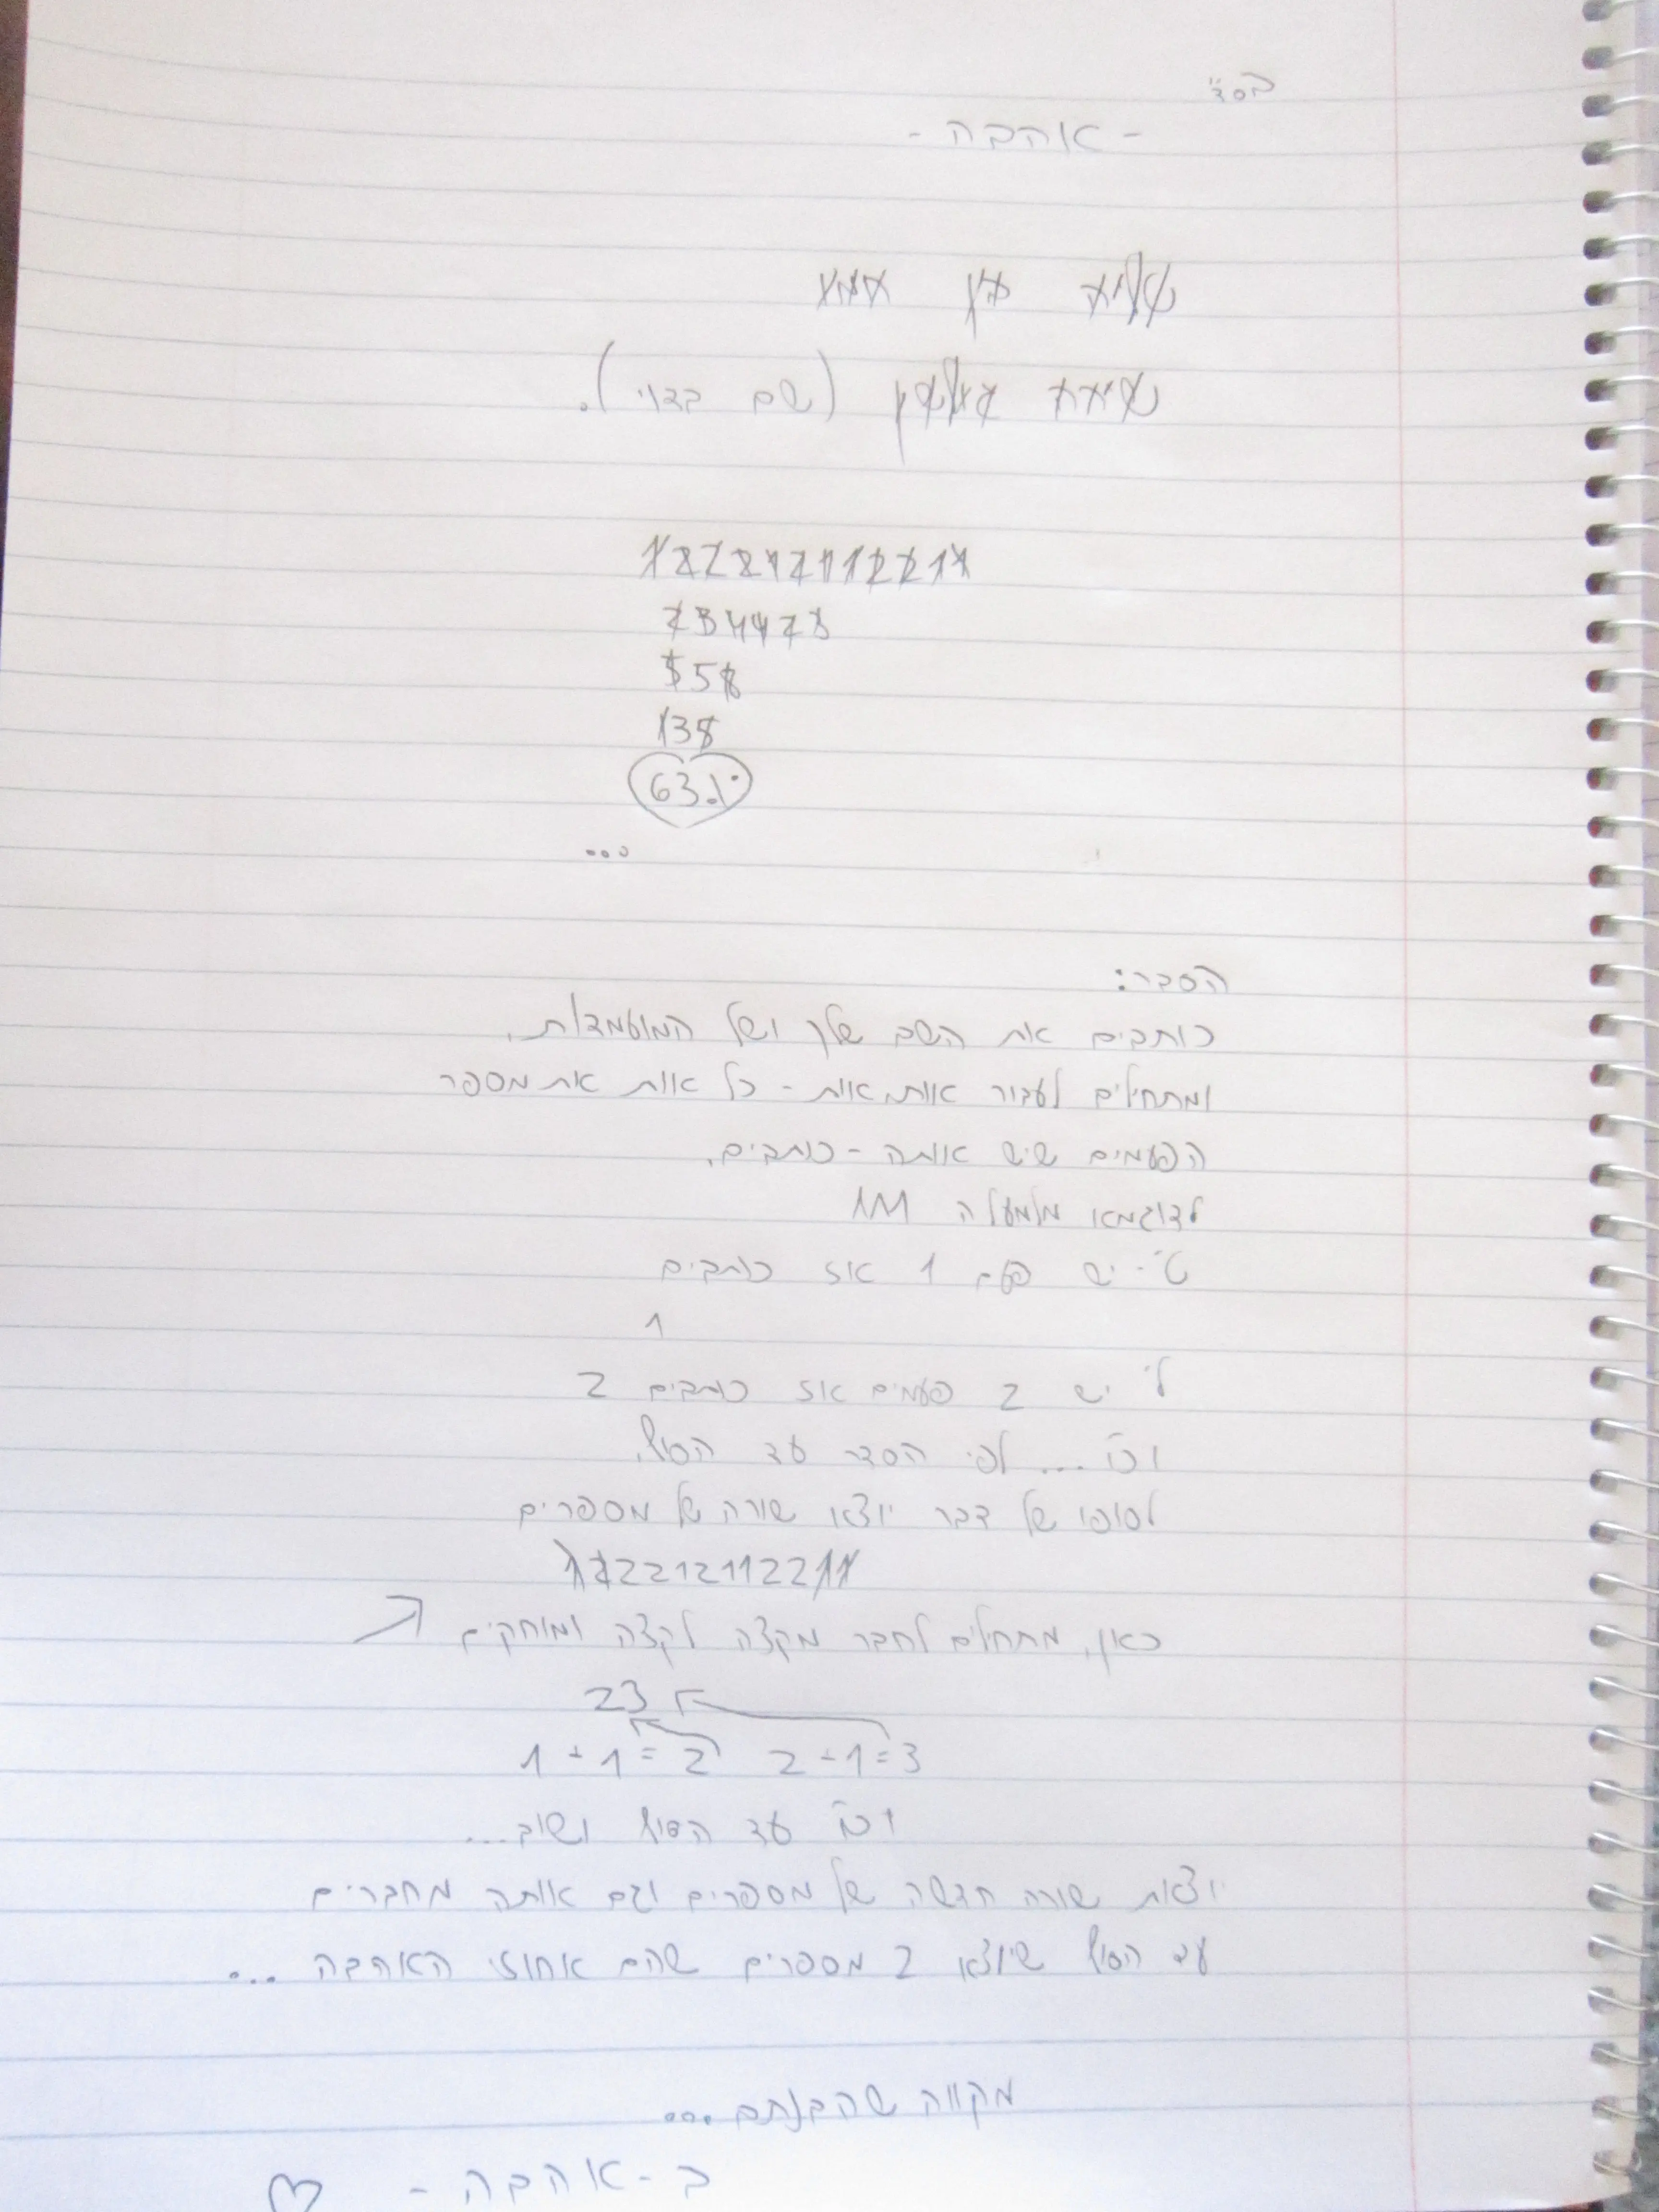 בסד"
- אהבה -
(שם בדוי).
122212112211
234423
558
138
63%
...
הסבר:
כותבים את השם שלך ושל המועמד/ת.
ומתחילים לעבור אות, אות - כל אות את מספר
הפעמים שיש אותה - כותבים.
לדוגמא מלמעלה
ט' - יש פעם 1 אז כותבים
1
ל' יש 2 פעמים אז כותבים 2
וכו'... לפי הסדר עד הסוף.
לסופו של דבר יוצא שורה של מספרים
122212112211
כאן, מתחילים לחבר מקצה לקצה ומוחקים
23
1+1=2 2+1=3
וכו' עד הסוף ושוב...
יוצאת שורה חדשה של מספרים וגם אותה מחברים
עד הסוף שיוצא 2 מספרים שהם אחוזי האהבה ...
מקווה שהבנתם ...
ב - אהבה -